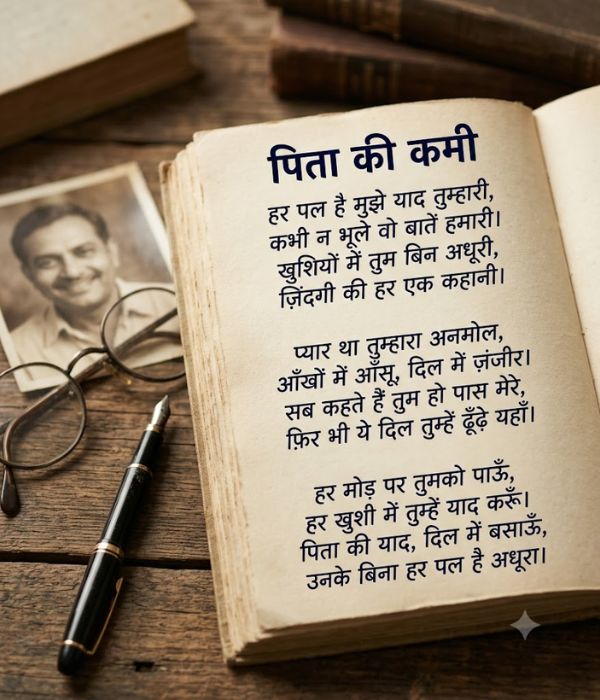 पिता की कमी
हर पल है मुझे याद तुम्हारी,
कभी न भूले वो बातें हमारी।
खुशियों में तुम बिन अधूरी,
ज़िंदगी की हर एक कहानी।
प्यार था तुम्हारा अनमोल,
आँखों में आँसू, दिल में ज़ंजीर।
सब कहते हैं तुम हो पास मेरे,
फ़िर भी ये दिल तुम्हें ढूँढ़े यहाँ।
हर मोड़ पर तुमको पाऊँ,
हर खुशी में तुम्हें याद करूँ।
पिता की याद, दिल में बसाऊँ,
उनके बिना हर पल है अधूरा।